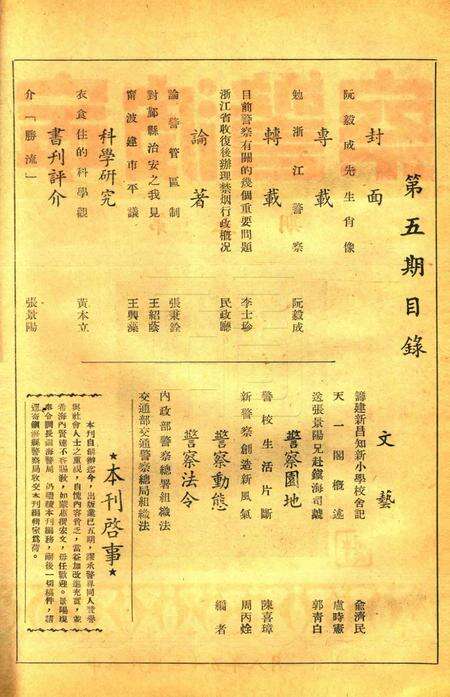 第五期目錄
封面
阮毅成先生肖像
專載
勉浙江警察 阮毅成
轉載
目前警察有關的幾個重要問題 李士珍
浙江省收復後辦理禁烟行政概况 民政廳
論著
論警管區制 張秉銓
對鄞縣治安之我見 王紹蔭
甯波建市平議 王興藻
科學研究
衣食住的科學觀 黃本立
書刊評介
介「勝流」 張景陽
文藝
籌建新昌知新小學校舍記 俞濟民
天一閣概述 盧時憲
送張景陽兄赴鎮海司戲 郭青白
警察園地
警校生活片斷 陳喜璋
新警察創造新風氣 周丙烇
警察動態 編者
警察法令
內政部警察總署組織法
交通部交通警察總局組織法
★本刊啓事★
本刊自創辦迄今，出版業已五期，謬承警界同人贊譽
與社會人士之重視，自愧內容貧乏，當益加改進充實，並
希海內賢達不吝賜教，如蒙惠撰宏文，毋任歡迎。景陽現
奉令調長鎮海警局，仍繼續本刊編務，嗣後一切稿件，請
逕寄鎮海縣警察局收交本刊編輯室爲荷。